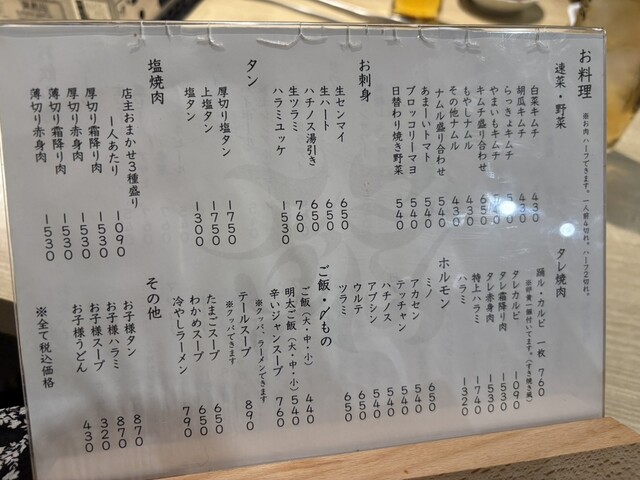 お料理 ※お肉ハーフできます。一人前4切れ。ハーフ2切れ。
速菜・野菜
白菜キムチ 430
胡瓜キムチ 430
らっきょキムチ
やまいもキムチ 540
キムチ盛り合わせ 650
もやしナムル 430
その他ナムル 430
ナムル盛り合わせ 540
あまーいトマト 540
ブロッコリーマヨ 540
日替わり焼き野菜 540
お刺身
生センマイ 650
生ハート 650
ハチノス湯引き 650
生ツラミ 760
ハラミユッケ 1530
タン
厚切り塩タン 1750
上塩タン 1750
塩タン 1300
塩焼肉
店主おまかせ3種盛り
一人あたり 1090
厚切り霜降り肉 1530
厚切り赤身肉 1530
薄切り霜降り肉 1530
薄切り赤身肉 1530
タレ焼肉
踊ル・カルビ 一枚 760
※卵黄一個付いてます。(すき焼き風)
タレカルビ 1090
タレ霜降り肉 1530
タレ赤身肉 1530
特上ハラミ 1740
ハラミ 1320
ホルモン
ミノ 650
アカセン 540
テッチャン 540
ハチノス 540
アブシン 540
ウルテ 650
ツラミ 650
ご飯・〆もの
ご飯(大・中・小) 440
明太ご飯(大・中・小) 540
辛いジャンスープ 760
※クッパ、ラーメンできます
テールスープ 890
※クッパできます
たまごスープ 650
わかめスープ 650
冷やしラーメン 790
その他
お子様タン 870
お子様ハラミ 870
お子様スープ 320
お子様うどん 430
※全て税込価格